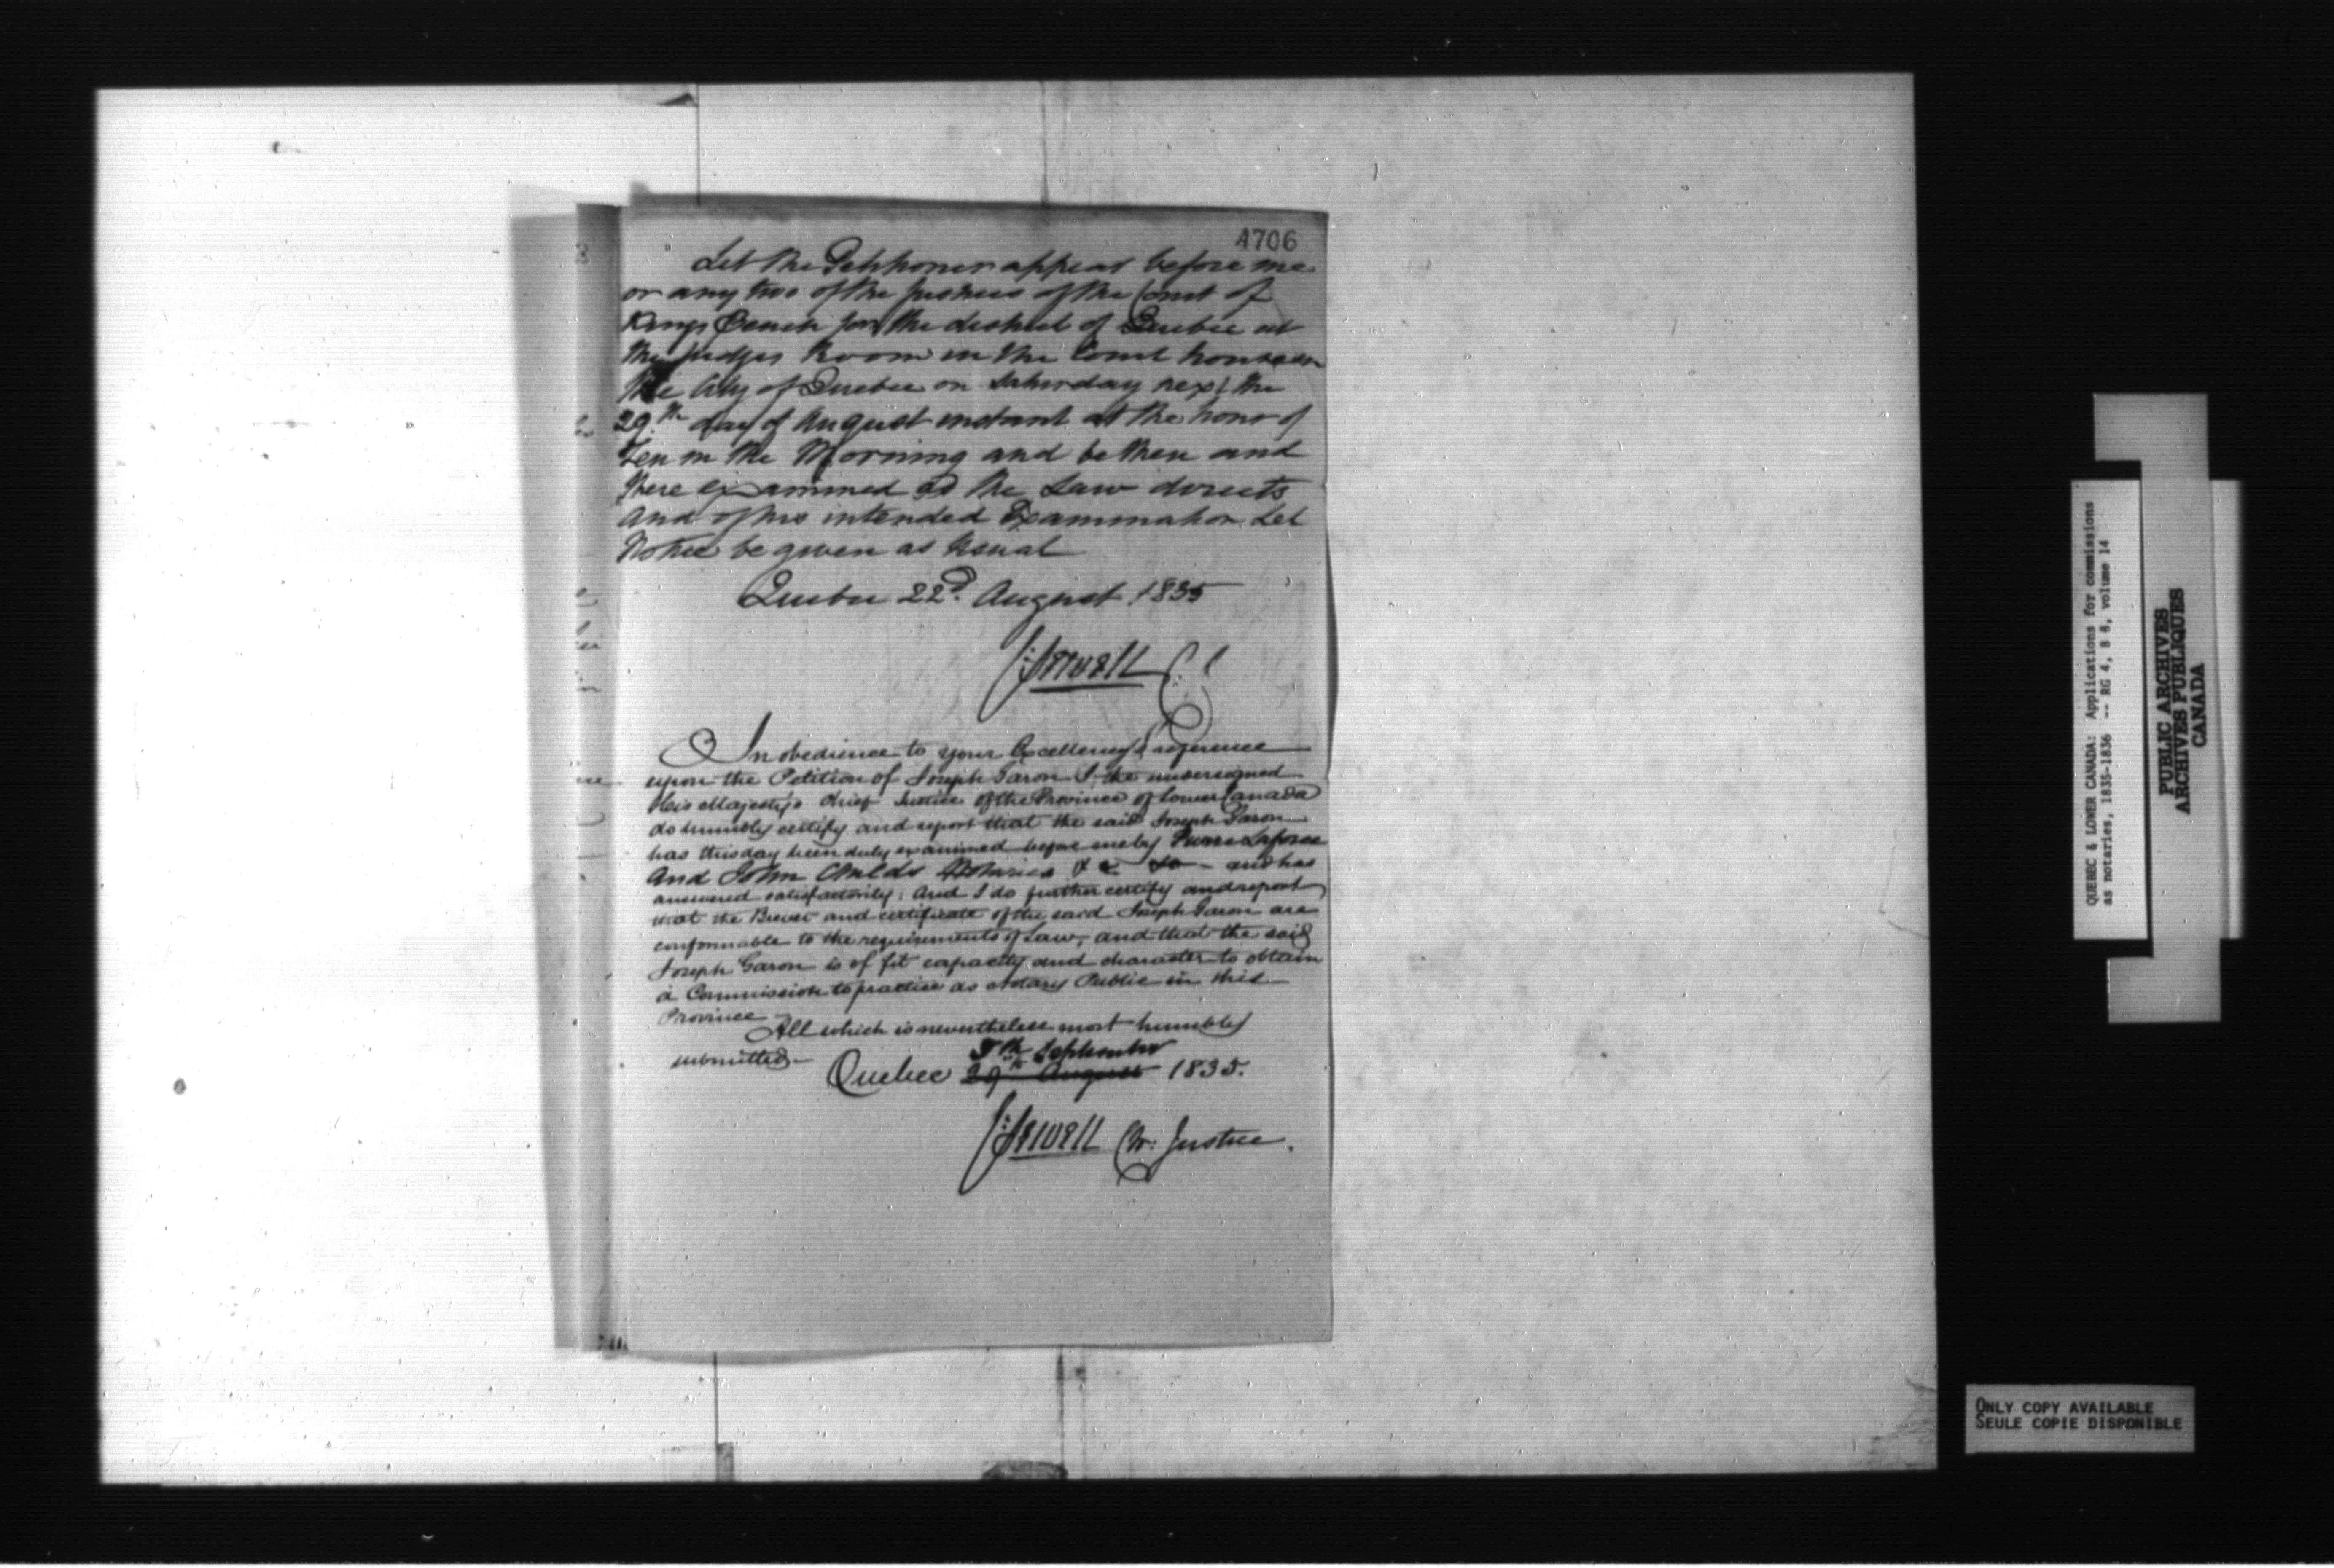 4706
Let the Petitioner appear before me
or any two of the Justices of the Court of
Kings Bench for the district of Quebec at
the Judges Room in the Court house in
the City of Quebec on Saturday next the
29th day of August instant at the hour of
Ten in the Morning and be then and
there examined as the Law directs
and of this intended Examination Let
Notice be given as usual
Quebec 22d. August 1835
J: Sewell C: J
In obedience to your Excellency's reference
upon the Petition of Joseph Garon I the undersigned
His Majesty's Chief Justice of the Province of Lower Canada
do humbly certify and report that the said Joseph Garon
has this day been duly examined before me by Pierre Laforce
and John Childs Notaries and has
answered satisfactorily: And I do further certify and report
that the Brevet and certificate of the said Joseph Garon are
conformable to the requirements of Law, and that the said
Joseph Garon is of fit capacity and character to obtain
a Commission to practise as Notary Public in this
Province
All which is nevertheless most humbly
submitted
5th September
Quebec 29th August 1835.
J: Sewell Ch: Justice.
QUEBEC & LOWER CANADA: Applications for commissions
as notaries, 1835-1836 -- RG 4, B 8, volume 14
PUBLIC ARCHIVES
ARCHIVES PUBLIQUES
CANADA
ONLY COPY AVAILABLE
SEULE COPIE DISPONIBLE